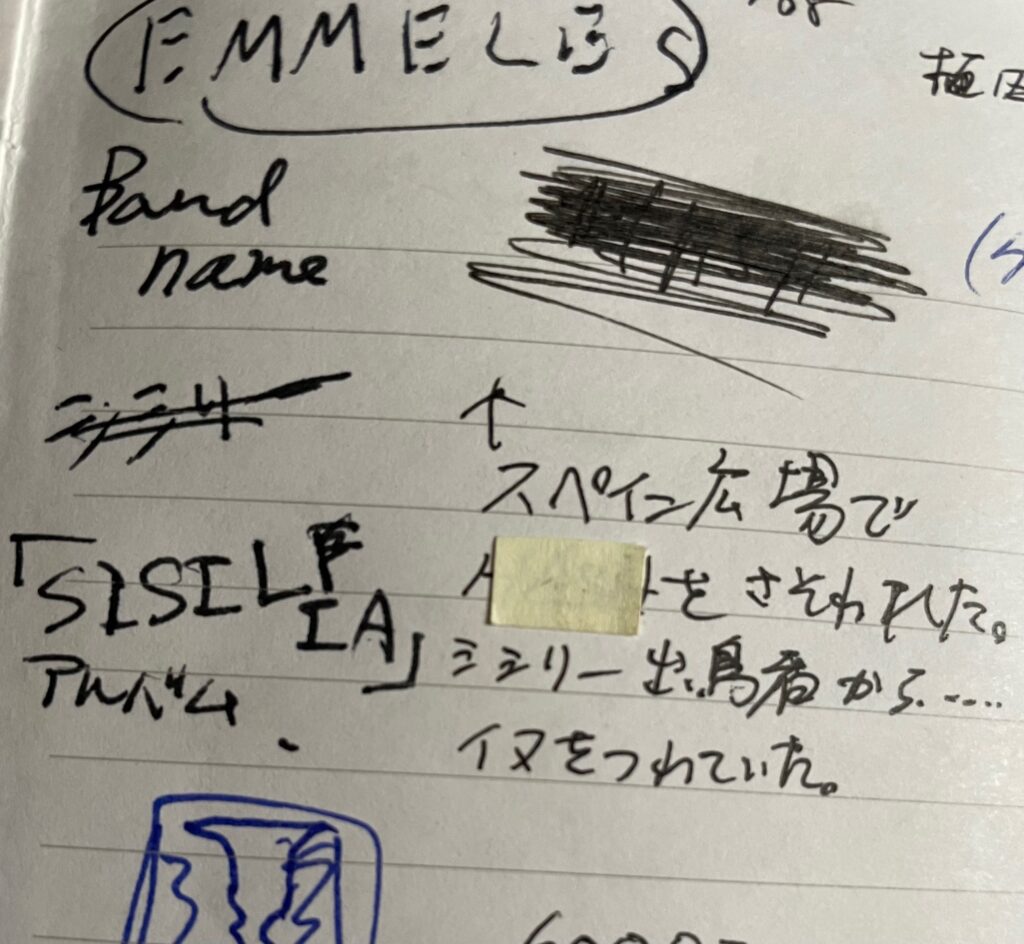 EMMELES
Band
name
↑
スペイン広場で
をさそわれた。
「SISILIA」
シシリー出
から.....
アルバム
イヌをつれていた。